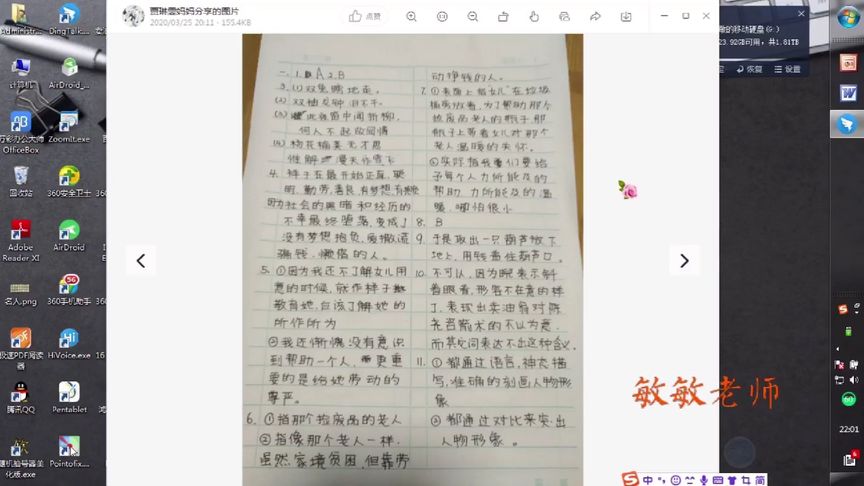 贾琳雲妈妈分享的图片
2020/03/25 20:11 · 155.4KB
点赞
Administr...
DingTalk...
计算机
AirDroid_...
万彩办公大师OfficeBox
ZoomIt.exe
回收站
360安全卫士
Adobe Reader XI
AirDroid
名人.png
360手机助手
极速PDF阅读器
HiVoice.exe
腾讯QQ
Pentablet
随机抽号器美化版.exe
Pointofix....
的移动硬盘(G:)
23.92GB可用，共1.81TB
恢复
设置
一、1. A 2. B
3. (1) 双兔傍地走。
(2) 双袖龙钟泪不干。
(3) 此夜曲中闻折柳，
何人不起故园情
(4) 杨花榆荚无才思
惟解漫天作雪飞
4. 祥子在最开始正直，聪
明，勤劳，善良，有梦想，有抱负
因为社会的黑暗和经历的
不幸最终堕落，变成了
没有梦想抱负，爱撒谎
骗钱，懒惰的人。
5. ①因为我还不了解女儿用
意的时候，
教育她，应该了解她的
所作所为
②我还惭愧没有意识
到帮助一个人，更重
要的是给她劳动的
尊严。
6. ①指那个捡废品的老人
②指像那个老人一样，
虽然家境贫困，但靠劳
动挣钱的人。
7. ①表面上指女儿在垃圾
桶旁放着，为了帮助那个
捡废品老人的瓶子，那
瓶子上带着女儿对那个
老人温暖的关怀。
②实际指我们要给
予每个人力所能及的
帮助，力所能及的温
暖，哪怕很小
8. B
9. 于是取出一只葫芦放下
地上，用钱盖住葫芦口。
10. 不可以，因为睨表示斜
着眼看，形容不在意的样
子，表现出卖油翁对陈
尧咨箭术的不以为意，
而其它词表达不出这种含义。
11. ①都通过语言，神态描
写，准确的刻画人物形
象
②都通过对比来突出
人物形象。
敏敏老师
中
简
60
22:01